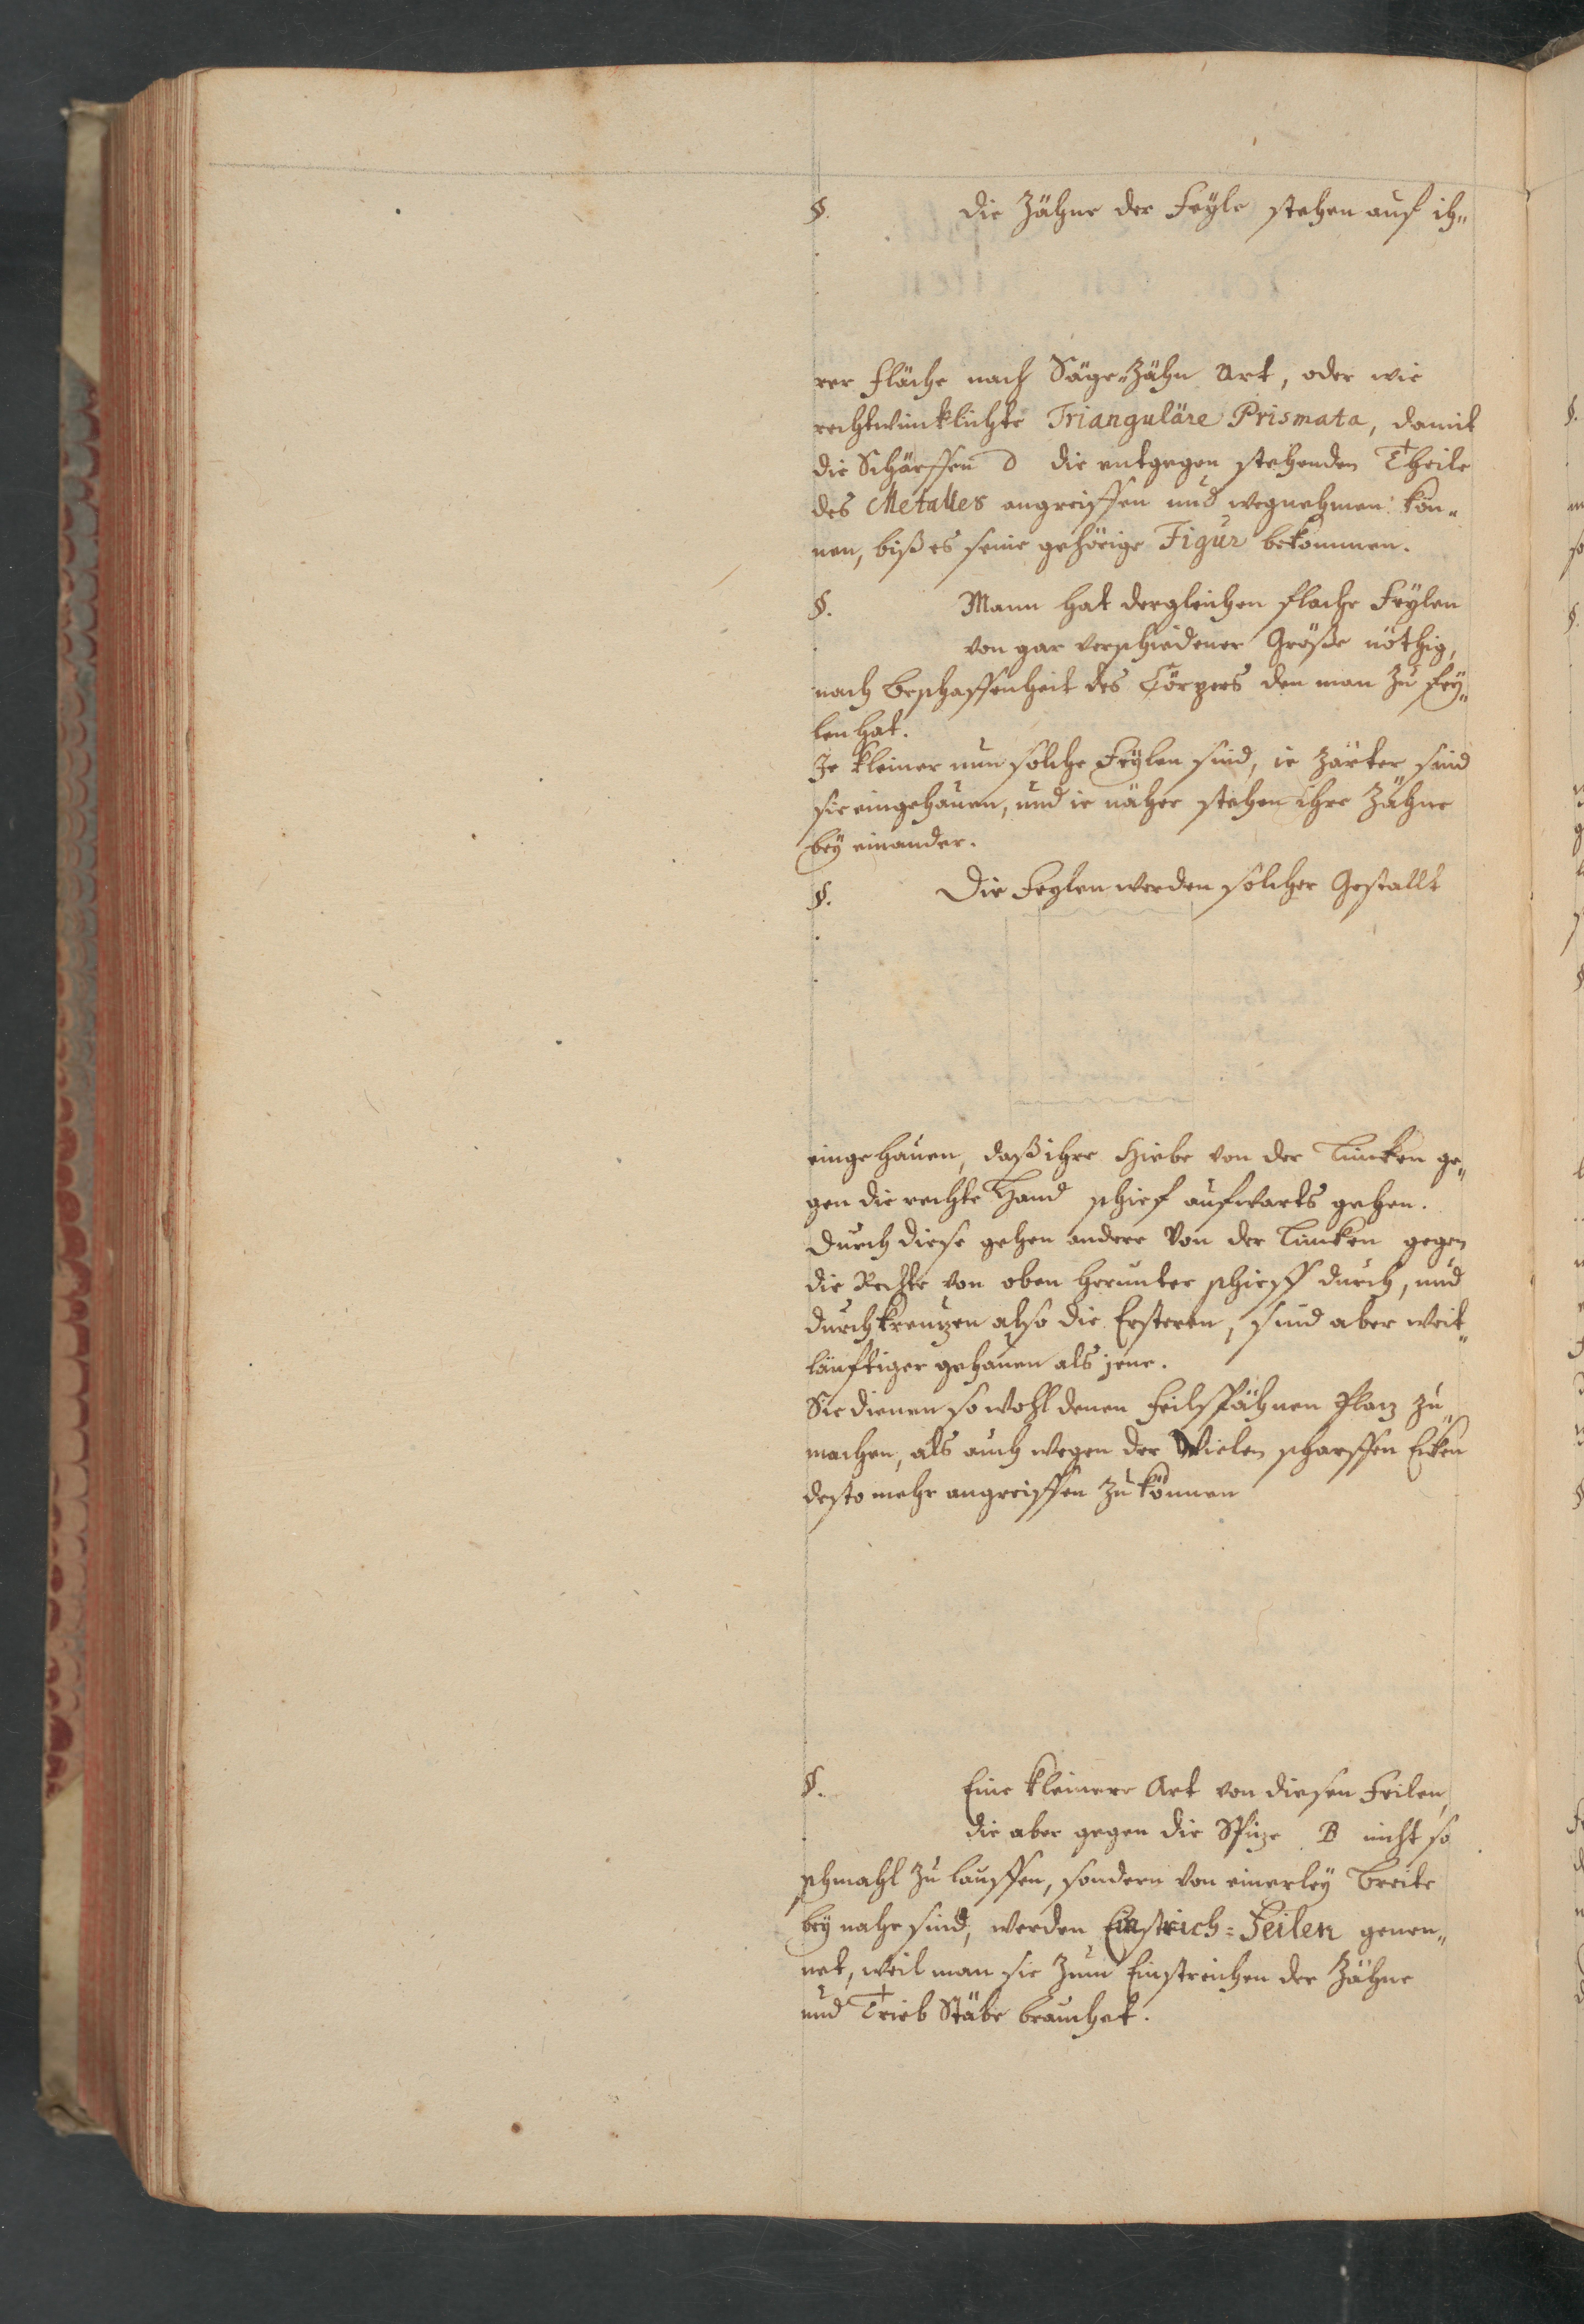 §. die Zähne der Feyle stehen auf ih„
rer Fläche nach Säge-Zähn Art, oder wie
rechtwincklichte Trianguläre Prismata, damit
die Schärffen d die entgegen stehenden Theile
des Metalles angreiffen und wegnehmen kön„
nen, biß es seine gehörige Figur bekommen.
§. Mann hat dergleichen flache Feylen
von gar verschiedener Größe nöthig,
nach Beschaffenheit des Cörpers den man zu fey„
len hat.
Je kleiner nun solche Feylen sind, ie zärter sind
sie eingehauen, und ie näher stehen ihre Zähne
bey einander.
§. Die Feylen werden solcher Gestallt
eingehauen, daß ihre Hiebe von der Lincken ge„
gen die rechte Hand schief aufwarts gehen.
Durch diese gehen andere von der Lincken gegen
die Rechte von oben herunter schieff durch, und
durchkreuzen also die Ersteren, sind aber weit„
läufftiger gehauen als jene.
Sie dienen so wohl denen Feilspähnen Plaz zu
machen, als auch wegen der Vielen scharffen Ecken
desto mehr angreiffen zu können
§. Eine kleinere Art von diesen Feilen,
die aber gegen die Spize B nicht so
schmahl zu lauffen, sondern von einerley Breite
bey nahe sind, werden Einstrich=Feilen genen„
net, weil man sie zum Einstreichen der Zähne
und Trieb Stäbe brauchet.